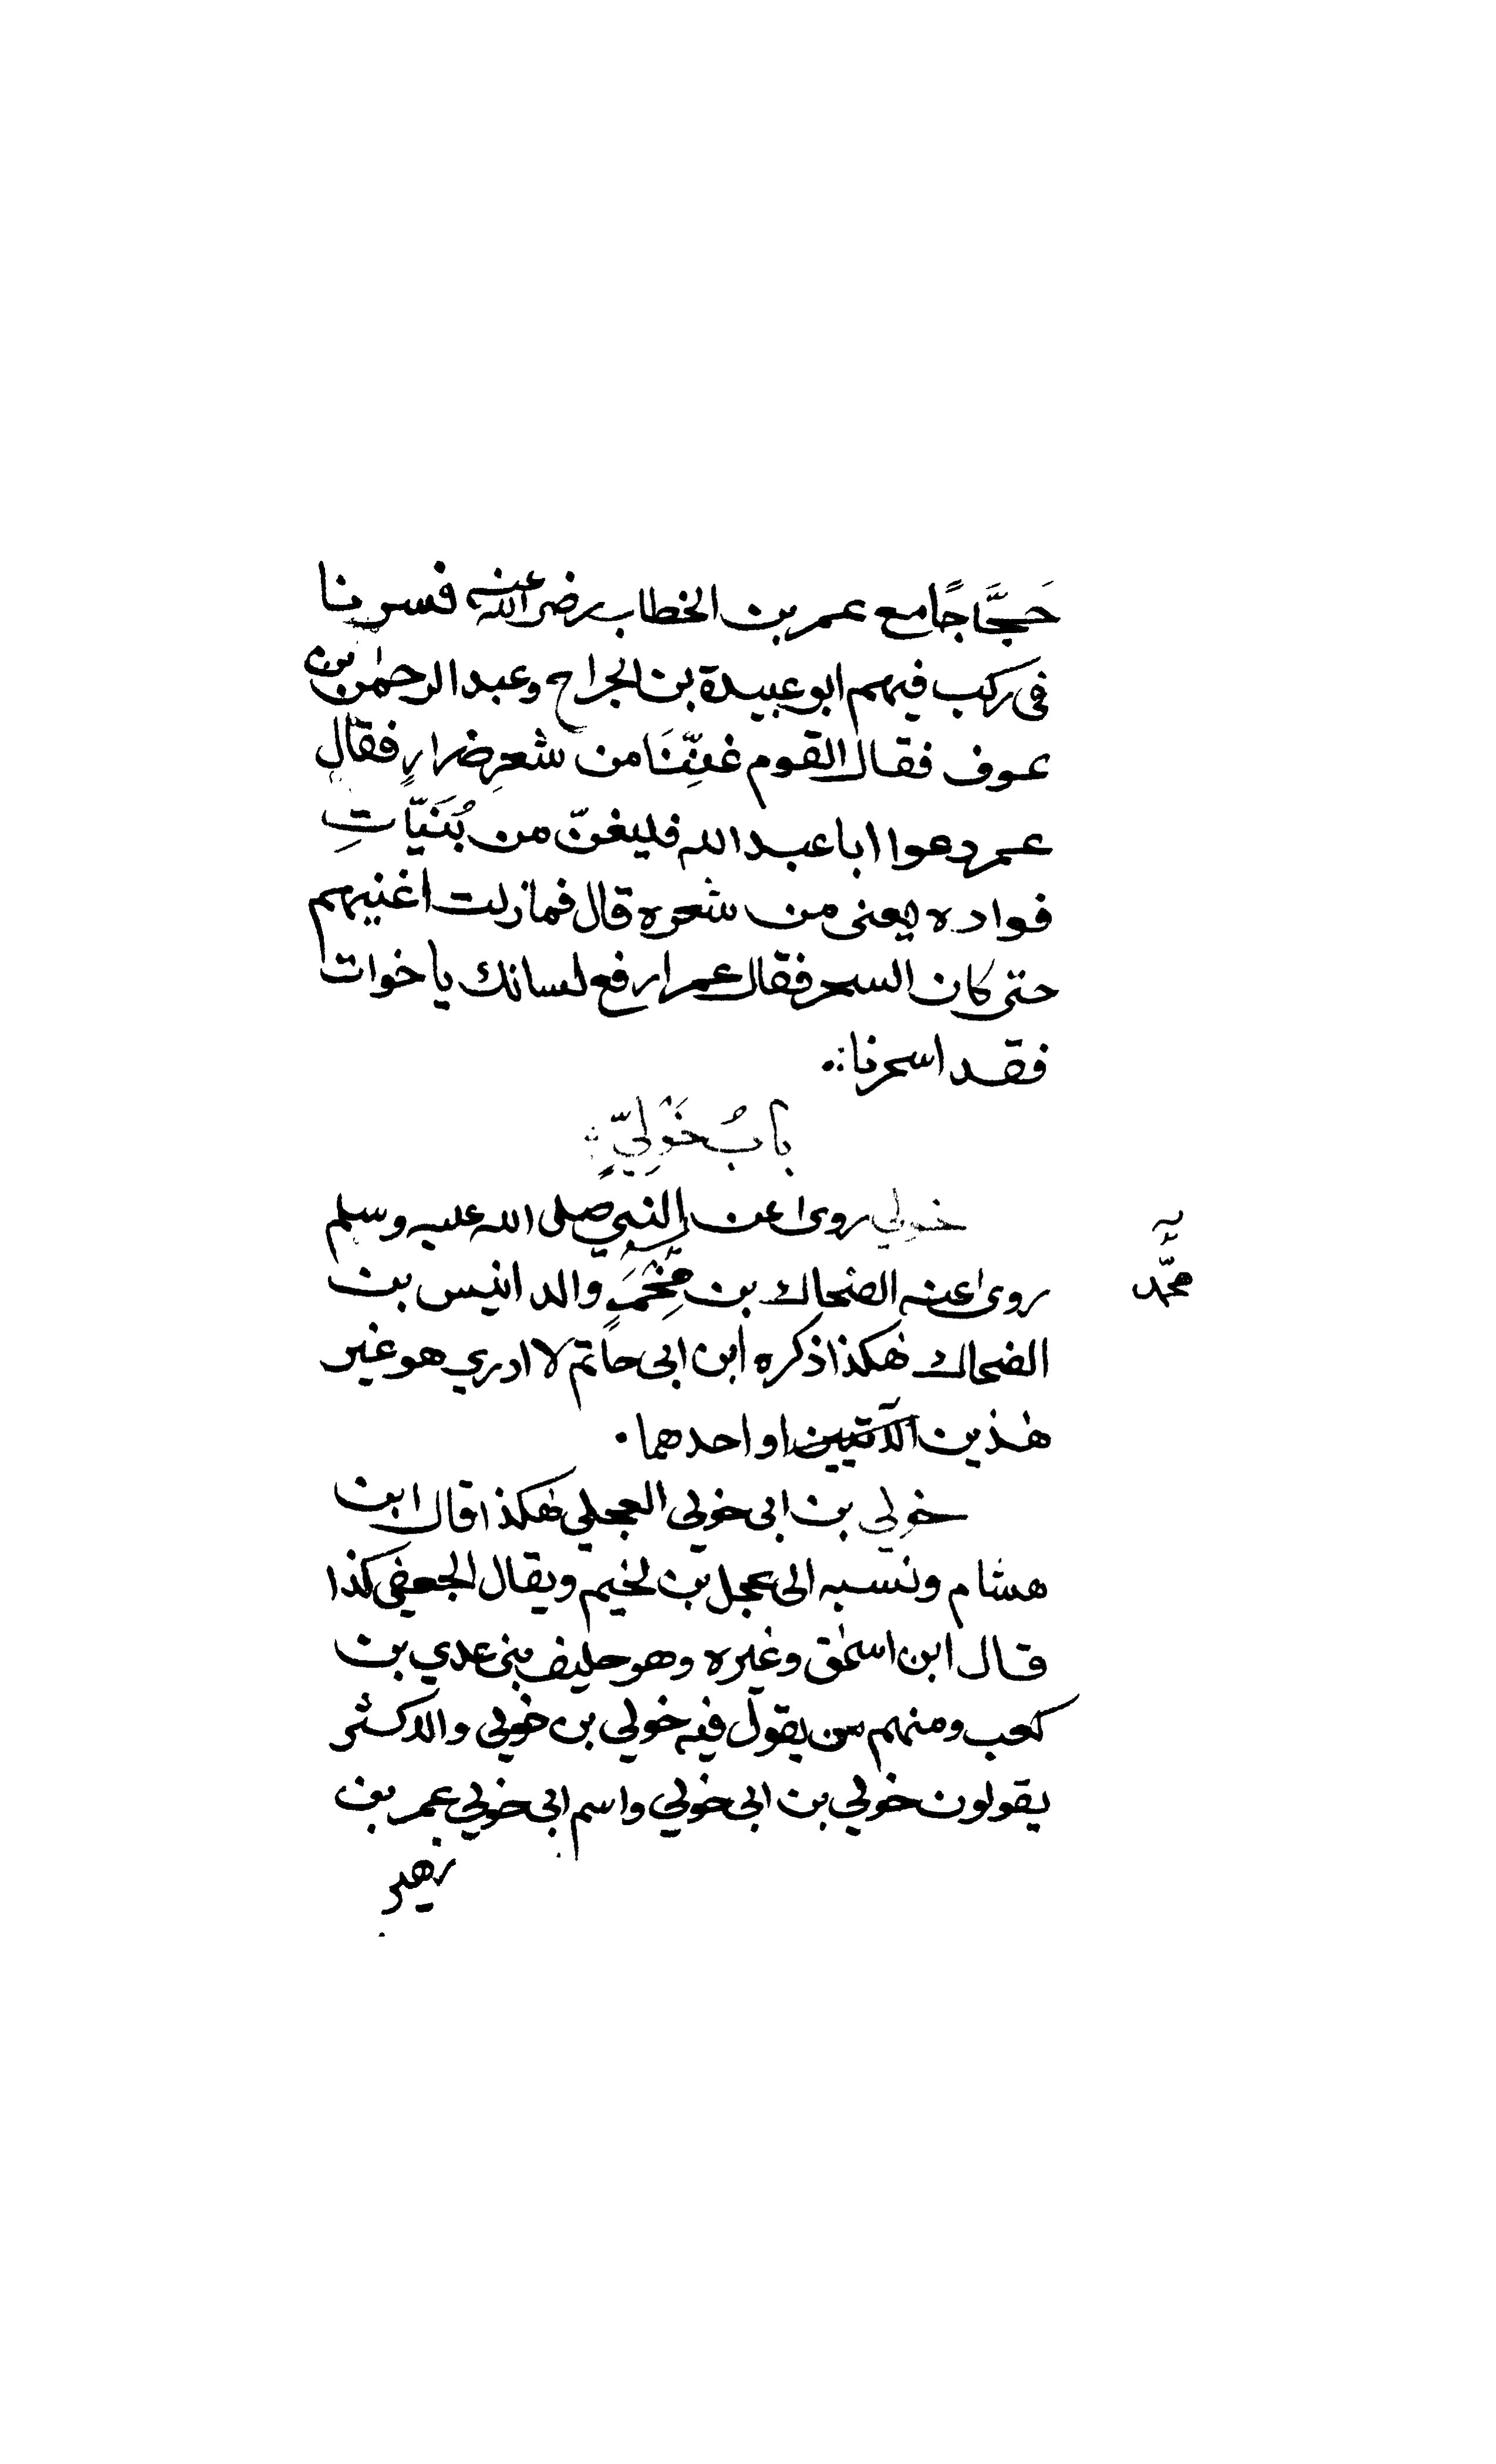 حَجَّاجًا مع عمر بن الخطاب رضي الله عنه فسرنا
في ركب فيهم ابو عبيدة بن الجراح وعبد الرحمٰن بن
عوف فقال القوم غنِّنَا من شعرِ ضرارٍ فقال
عمر دعوا ابا عبد الله فليغنّ من بُنَيّاتِ
فواده يعنى من شعره قال فما زلت اغنيهم
حتى كان السحر فقال عمر ارفع لسانك يا خوات
فقد اسحرنا
بابُ خَوْلِيّ
خولي روى عن النبي صلى الله عليه وسلم
روى عنه الضحاك بن مِخْمَر والد انيس بن
محمّد
الضحاك هٰكذا ذكره ابن ابى حاتم لا ادري هو غير
هٰذين الآتيين او احدهما.
خولي بن ابى خولي العجلي هٰكذا قال ابن
هشام ونسبه الى عجل بن لخيم ويقال الجعفى كذا
قال ابن اسحٰق وغيره وهو حليف بنى عدي بن
كعب ومنهم من يقول فيه خولي بن خولي والاكثر
يقولون خولي بن ابى خولي واسم ابى خولي عمر بن
زهير